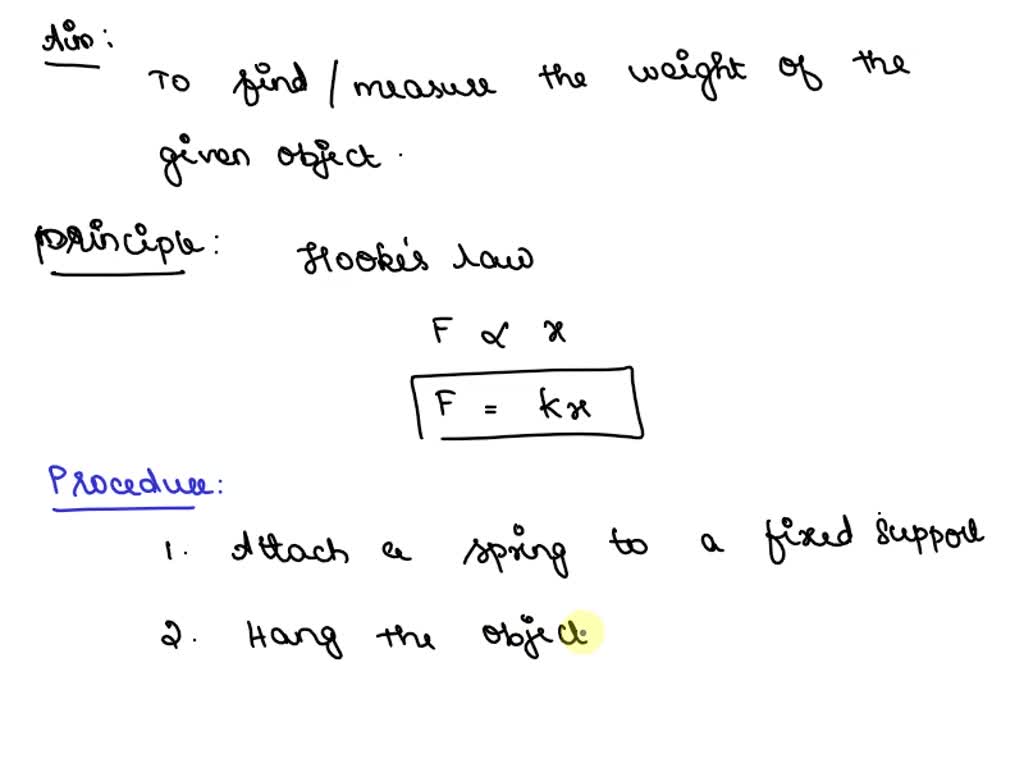 Aim:
To find / measure the weight of the
given object.
Principle:
Hooke's law
F ∝ x
F = kx
Procedure:
1. Attach a spring to a fixed support
2. Hang the object